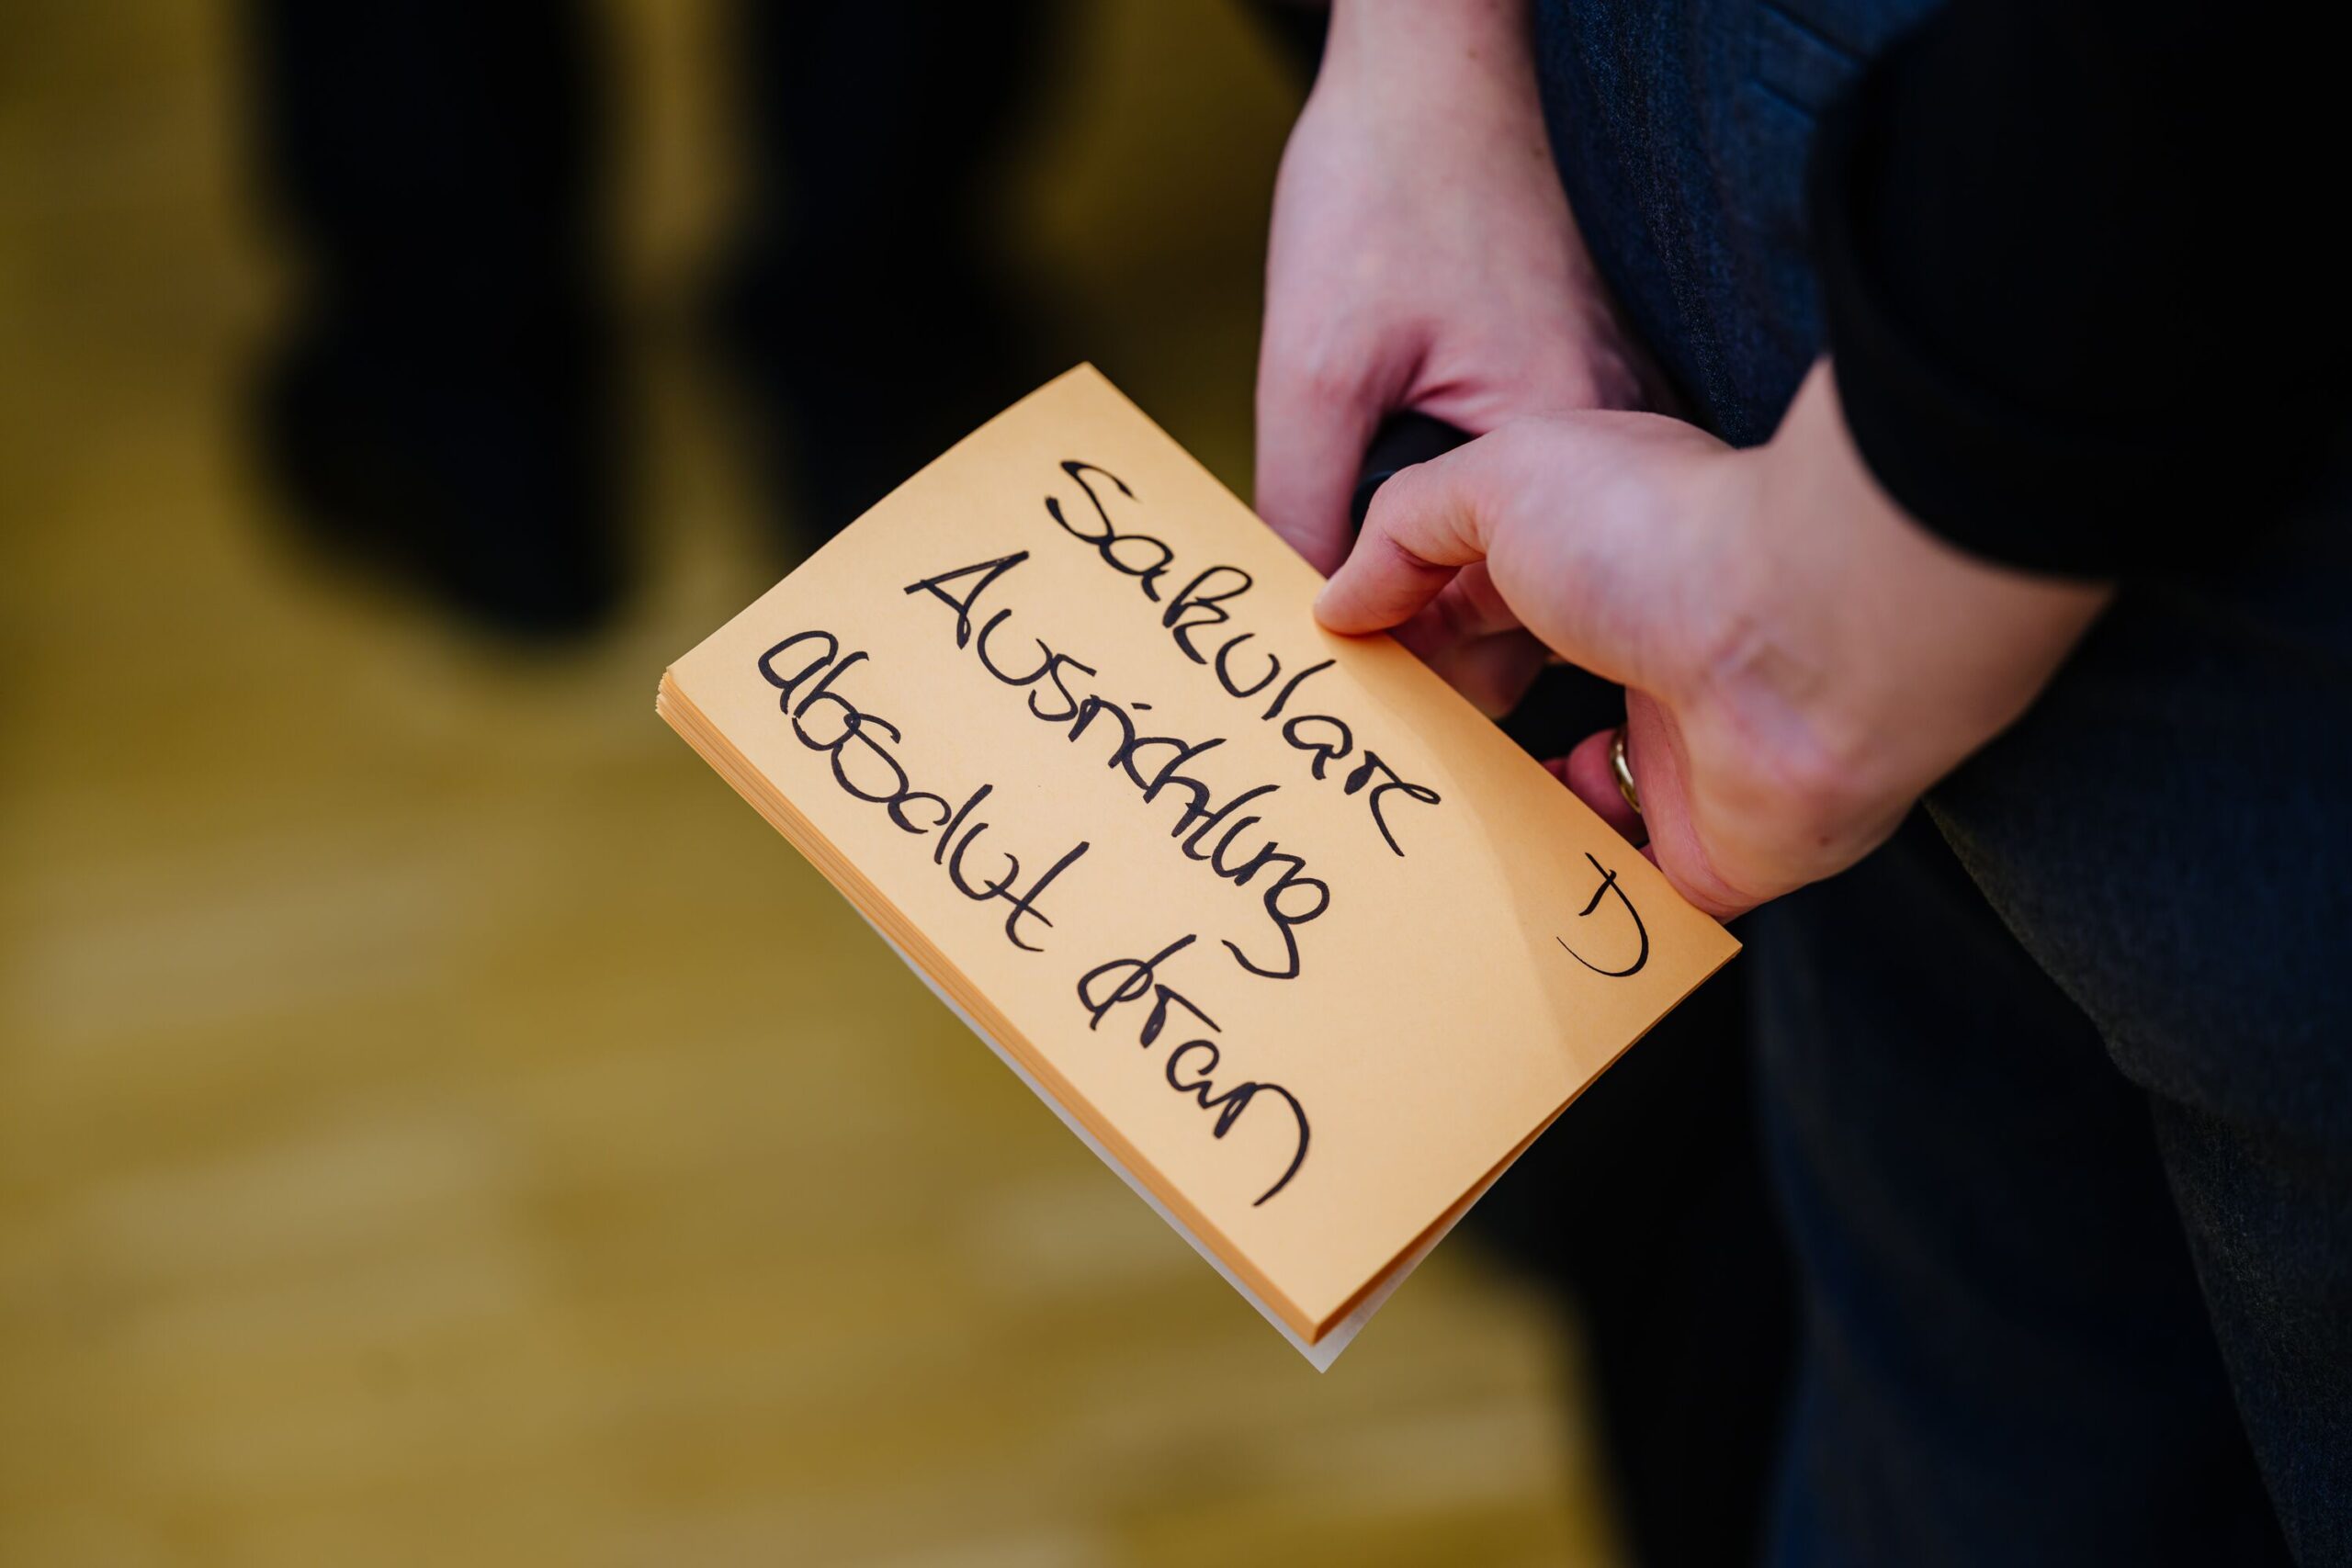 Sakulare
Ausrichtung
absolut dran
J